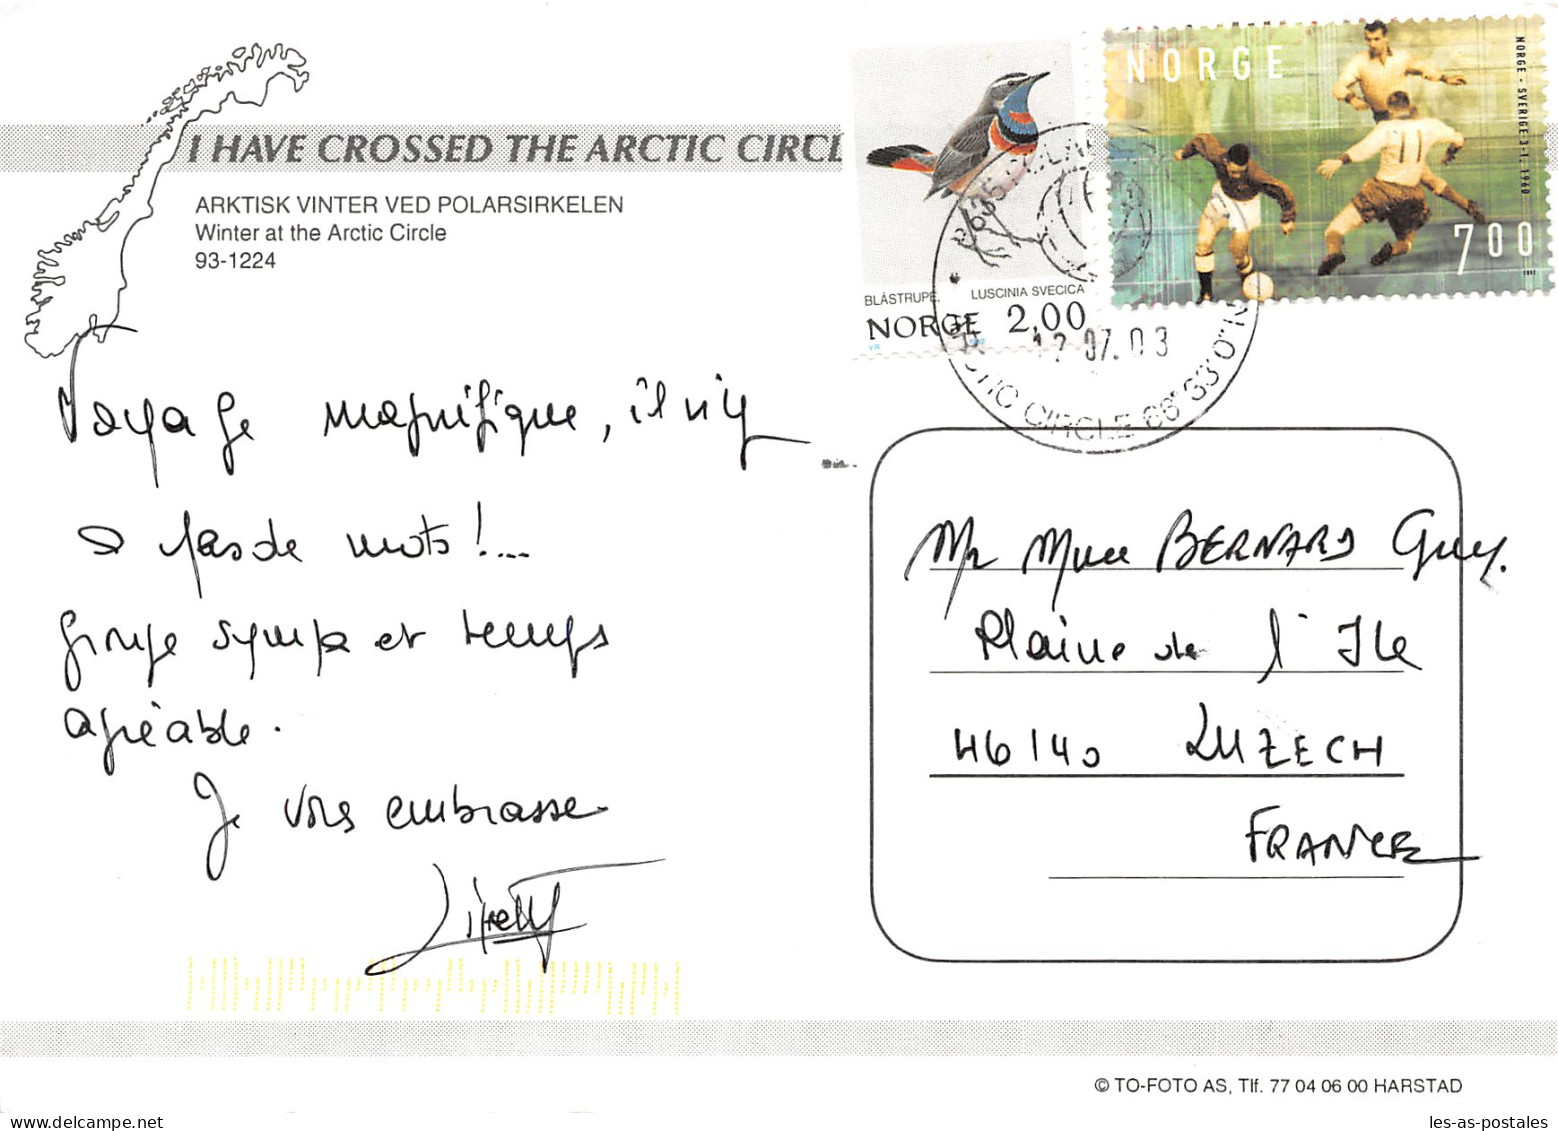 I HAVE CROSSED THE ARCTIC CIRCL
ARKTISK VINTER VED POLARSIRKELEN
Winter at the Arctic Circle
93-1224
BLÅSTRUPE, LUSCINIA SVECICA
NORGE 2,00
NORGE
NORGE - SVERIGE 3-1, 1960
700
17.07.03
ARCTIC CIRCLE 66°33'
Voyage magnifique, il n'y
a pas de mots !...
groupe sympa et temps
agréable.
Je vous embrasse
Mr Mme BERNARD Guy.
Plaine de l'Ile
46140 LUZECH
FRANCE
© TO-FOTO AS, Tlf. 77 04 06 00 HARSTAD
les-as-postales